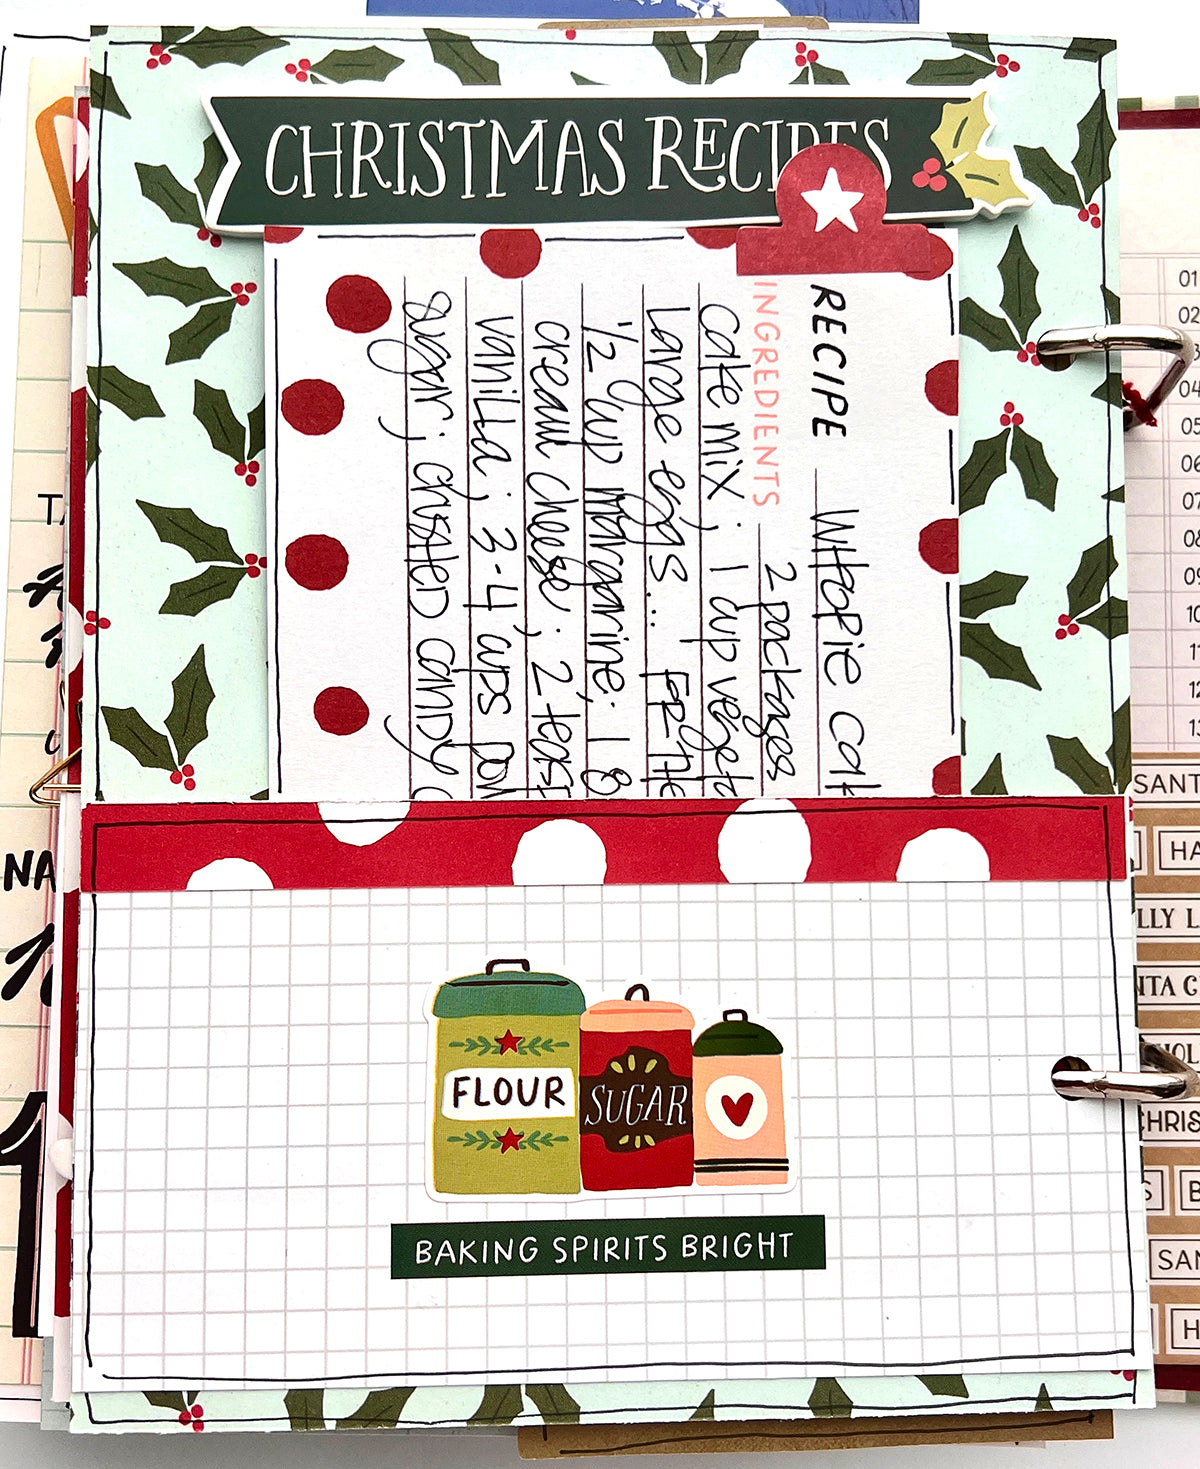 CHRISTMAS RECIPES
RECIPE WHOOPIE
INGREDIENTS 2 packages
cake mix; 1 cup
Large eggs... FOR
1/2 cup margarine; 1 8
cream cheese; 2
vanilla; 3-4 cups
sugar; crushed candy
FLOUR
SUGAR
BAKING SPIRITS BRIGHT
NA
01
02
04
05
06
07
08
09
10
11
12
13
SANT
HA
LLY L
NTA C
HOL
CHRIS
S
B
SAN
H